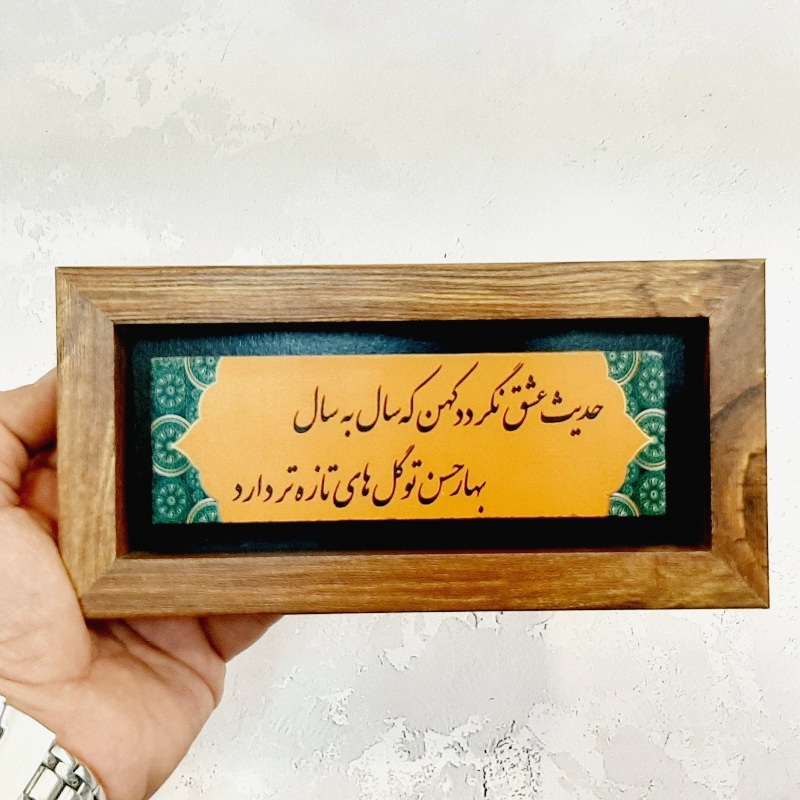 حدیث عشق نگردد کهن که سال به سال
بهار حسن تو گل های تازه تر دارد